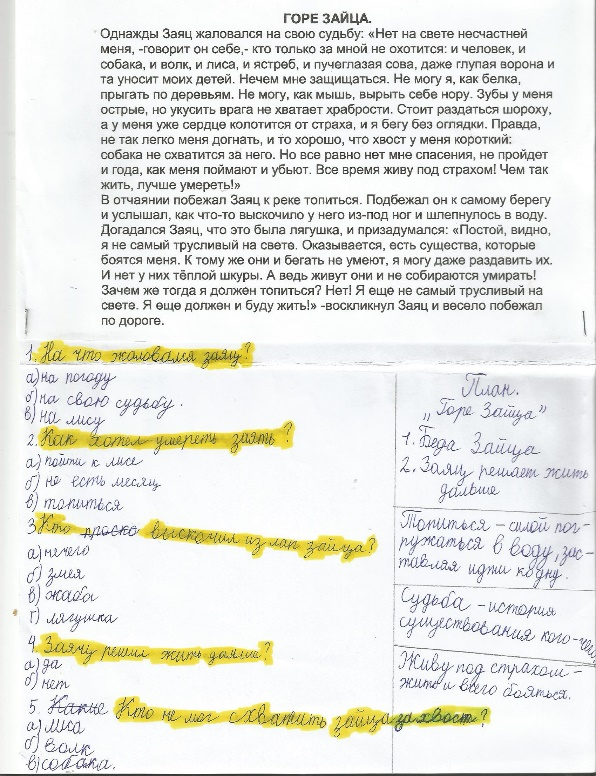 ГОРЕ ЗАЙЦА.
Однажды Заяц жаловался на свою судьбу: «Нет на свете несчастней
меня, -говорит он себе,- кто только за мной не охотится: и человек, и
собака, и волк, и лиса, и ястреб, и пучеглазая сова, даже глупая ворона и
та уносит моих детей. Нечем мне защищаться. Не могу я, как белка,
прыгать по деревьям. Не могу, как мышь, вырыть себе нору. Зубы у меня
острые, но укусить врага не хватает храбрости. Стоит раздаться шороху,
а у меня уже сердце колотится от страха, и я бегу без оглядки. Правда,
не так легко меня догнать, и то хорошо, что хвост у меня короткий:
собака не схватится за него. Но все равно нет мне спасения, не пройдет
и года, как меня поймают и убьют. Все время живу под страхом! Чем так
жить, лучше умереть!»
В отчаянии побежал Заяц к реке топиться. Подбежал он к самому берегу
и услышал, как что-то выскочило у него из-под ног и шлепнулось в воду.
Догадался Заяц, что это была лягушка, и призадумался: «Постой, видно,
я не самый трусливый на свете. Оказывается, есть существа, которые
боятся меня. К тому же они и бегать не умеют, я могу даже раздавить их.
И нет у них тёплой шкуры. А ведь живут они и не собираются умирать!
Зачем же тогда я должен топиться? Нет! Я еще не самый трусливый на
свете. Я еще должен и буду жить!» -воскликнул Заяц и весело побежал
по дороге.
1. На что жаловался заяц?
а) на погоду
б) на свою судьбу.
в) на лису
2. Как хотел умереть заять?
а) пойти к лисе
б) не есть месяц
в) топиться
3. Кто проско выскочил из лап зайца?
а) ничего
б) змея
в) жабы
г) лягушка
4. Заяц решил жить дальше?
а) да
б) нет
5. Какие Кто не мог схватить зайца за хвост?
а) лиса
б) волк
в) собака.
План.
„Горе Зайца"
1. Беда Зайца
2. Заяц решает жить
дальше
Топиться – силой пог-
ружаться в воду, зас-
тавляя идти ко дну.
Судьба – история
существования кого-чего
Живу под страхом –
жить и всего бояться.